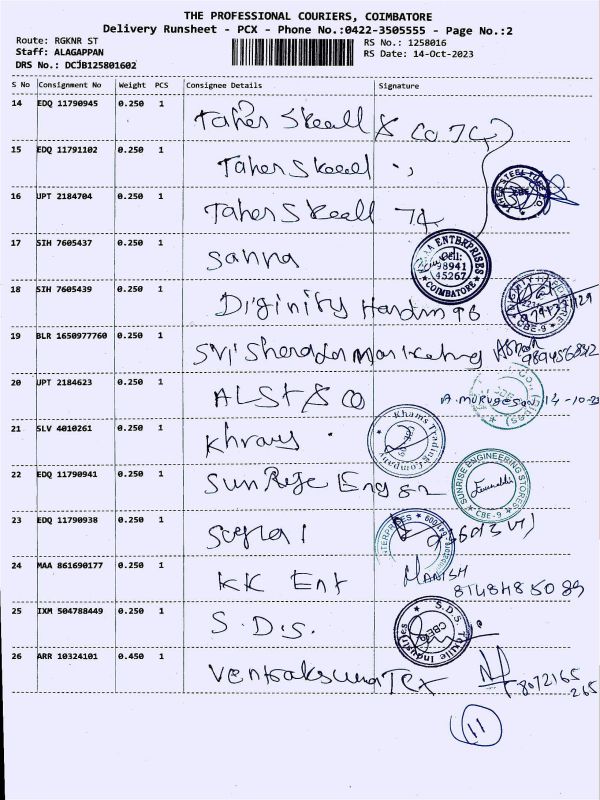 THE PROFESSIONAL COURIERS, COIMBATORE
Delivery Runsheet - PCX - Phone No.:0422-3505555 - Page No.:2
Route: RGKNR ST RS No.: 1258016
Staff: ALAGAPPAN RS Date: 14-Oct-2023
DRS No.: DCJB125801602
S No Consignment No Weight PCS Consignee Details Signature
14 EDQ 11790945 0.250 1 Taher Skeall & Co 74
15 EDQ 11791102 0.250 1 Taher Skeeel
16 UPT 2184704 0.250 1 Taher Skeall 74
TAHER STEEL TUBE CO. CBE
17 SIH 7605437 0.250 1 Sanna
ENTERPRISES Cell: 98941 45267 COIMBATORE
18 SIH 7605439 0.250 1 Diginity Hardm
CBE-9
19 BLR 1650977760 0.250 1 Sri Sharada Marketing
20 UPT 2184623 0.250 1 ALST & CO A. MURUGESAN 14-10-23
21 SLV 4010261 0.250 1 Khrays
Khams Trading Company
22 EDQ 11790941 0.250 1 SunRise Engg
SUNRISE ENGINEERING STORES CBE-9
23 EDQ 11790938 0.250 1
ENTERPRISES 641009
24 MAA 861690177 0.250 1 KK Ent MANISH
8748485089
25 IXM 504788449 0.250 1 S.D.S.
S.D.S. Textile Industries CBE-9
26 ARR 10324101 0.450 1 8072165
265
11